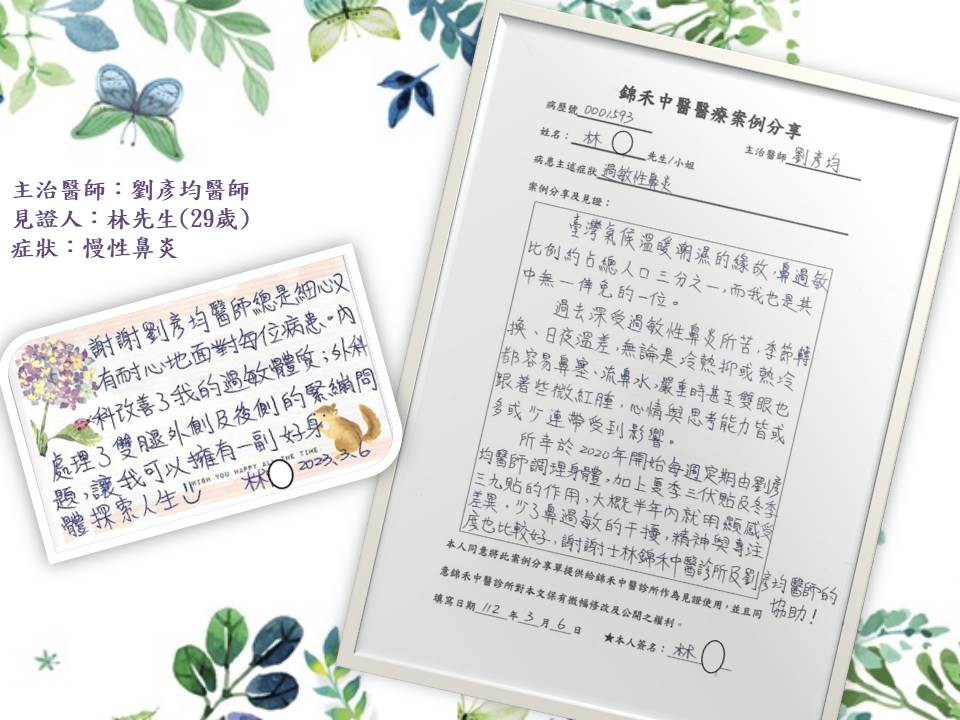 主治醫師：劉彥均醫師
見證人：林先生(29歲)
症狀：慢性鼻炎
謝謝劉彥均醫師總是細心又
有耐心地面對每位病患。內
科改善了我的過敏體質；外科
處理了雙腿外側及後側的緊繃問
題，讓我可以擁有一副好身
體探索人生!!
WISH YOU HAPPY ALL THE TIME
林○ 2023.3.6
錦禾中醫醫療案例分享
病歷號 0001593
姓名：林○先生/小姐 主治醫師 劉彥均
病患主述症狀 過敏性鼻炎
案例分享及見證：
臺灣氣候溫暖潮濕的緣故，鼻過敏
比例約占總人口三分之一，而我也是其
中無一倖免的一位。
過去深受過敏性鼻炎所苦，季節轉
換、日夜溫差，無論是冷熱抑或熱冷
都容易鼻塞、流鼻水，嚴重時甚至雙眼也
跟著些微紅腫，心情與思考能力皆或
多或少連帶受到影響。
所幸於2020年開始每週定期由劉彥
均醫師調理身體，加上夏季三伏貼及冬季
三九貼的作用，大概半年內就明顯感受
差異，少了鼻過敏的干擾，精神與專注
度也比較好、謝謝士林錦禾中醫診所及劉彥均醫師的
協助！
本人同意將此案例分享單提供給錦禾中醫診所作為見證使用，並且同
意錦禾中醫診所對本文保有微幅修改及公開之權利。
填寫日期 112 年 3 月 6 日 ★本人簽名：林○